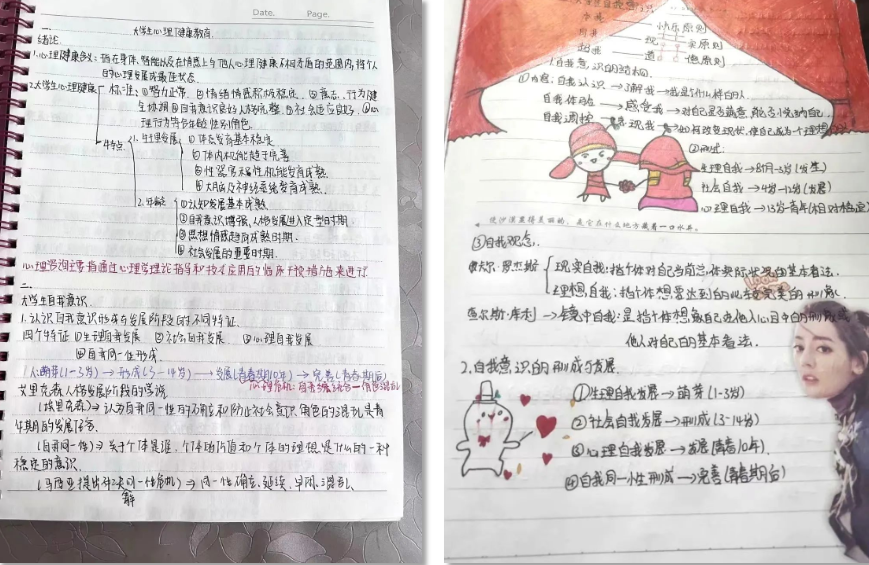 Date. Page.
大学生心理健康教育.
一.
绪论
1.心理健康含义:指在身体、智能以及在情感上与他人心理健康不相矛盾的范围内,将个人
的心境发展成最佳状态.
2.大学生心理健康
标准:①智力正常.②情绪情感积极稳定.③意志、行为健
全协调④自我意识良好人格完整.⑥社会适应良好.⑦心
理行为符合年龄性别角色.
特点
1.生理发展
①体态发育基本稳定
②体内机能趋于完善
③性器官和性机能发育成熟
④大脑及神经系统发育成熟.
2.
①认知发展基本成熟
②自我意识增强、人格发展进入定型时期.
③思想情感趋向成熟时期.
④社会发展的重要时期.
心理咨询主要指通过心理学理论指导和技术应用后的临床干预措施来进行
二.
大学生自我意识.
1.认识自我意识形成与发展阶段的不同特征.
四个特征 ①生理自我发展 ②社会自我发展 ③心理自我发展
④自我同一性形成.
(1-3岁)→形成(3-14岁)→发展(青春期10年)→完善(青春期后)
艾里克森人格发展阶段的学说
(埃里克森)→认为自我同一性的确立和防止社会意识角色的混乱是青
年期的发展任务.
(自我同一性)→关于个体是谁、个体的价值和个体的理想是什么的一种
稳定的意识.
(马西亚提出解决同一性危机)→同一性确立、延续、早闭、混乱.
快乐原则
现实原则
自我意识的结构.
①内容:自我认识→了解我→我是个什么样的人
自我体验→感受我→对自己是否满意,能否悦纳自己.
自我调控→现我→如何改变现状,使自己成为一个理想
②阶段:
生理自我→8月-3岁(发生)
社会自我→4岁-12岁(发展)
心理自我→13岁-青年(相对稳定)
使沙漠显得美丽的,是它在什么地方藏着一口水井。
③自我观念.
卡尔·罗杰斯
现实自我:指个体对自己当前总体实际状况的基本看法.
理想自我:指个体想要达到的比较完美的形象.
查尔斯·库利→镜中自我:是指个体想象自己在他人心目中的形象或
他人对自己的基本看法.
2.自我意识的形成与发展.
①生理自我发展→萌芽(1-3岁)
②社会自我发展→形成(3-14岁)
③心理自我发展→发展(青春10年).
④自我同一性形成→完善(青春期后)